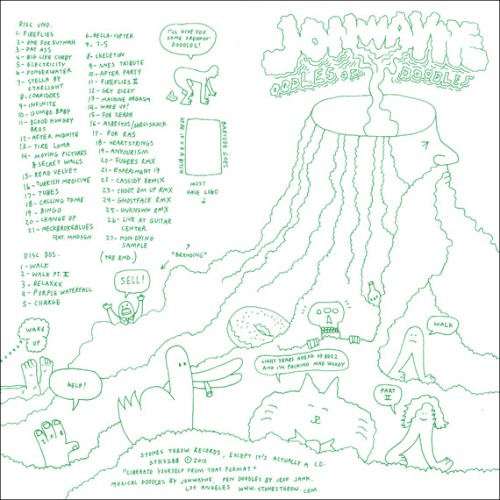 DISC UNO.
1- FIREFLIES
2- ONE FOR KUTMAH
3- PAT ASS
4- BIG LIFE CUBBY
5- ELECTRICITY
6- PONDERWATER
7- STELLA BY
STARLIGHT
8- CORRIDORS
9- INFINITE
10- GUMBO BABY
11- BLOOD HUNGRY
BROS
12- AFTER MIDNITE
13- TIRE LOMA
14- MOVING PICTURES
& SECRET WALLS
15- READ VELVET
16- TURKISH MEDICINE
17- TUBES
18- CALLING TOME
19- BINGO
20- CHANGE UP
21- NECKBROKEBLUES
FEAT. MNDSGN
DISC DOS.
1- WALK
2- WALK PT. II
3- RELAXXX
4- PURPLE WATERFALL
5- CHARGE
6- HELLA-COPTER
7- 7-5
8- SKELETUN
9- SNES TRIBUTE
10- AFTER PARTY
11- FIREFLIES II
12- GET DIZZY
13- MACHINE ORGASM
14- WAKE UP!
15- FOR SEAON
16- ASBESTOS/GREGSONCA
17- FOR RAS
18- HEARTSTRINGS
19- ANYOURISM
20- FUGEES RMX
21- EXPERIMENT 17
22- CASSIDY REMIX
23- SHOOT EM UP RMX
24- GHOSTFACE RMX
25- UNKNOWN RMX
26- LIVE AT GUITAR
CENTER
27- MON DYING
SAMPLE
(THE END.)
I'LL GIVE YOU
SOME FREAKIN'
DOODLES!
BARCODE GOES
HERE
MUST
HAVE LOGO
"BRANDING"
JONWAYNE
OODLES OF DOODLES
SELL!
WAKE
UP
HELP!
WALK
LIGHT YEARS AHEAD OF BOBZ
AND I'M PACKING MAD WOODY
PART
II
STONES THROW RECORDS, EXCEPT IT'S ACTUALLY A CD.
STH2288 © 2012
"LIBERATE YOURSELF FROM THAT FORMAT"
MUSICAL DOODLES BY JONWAYNE PEN DOODLES BY JEFF JANK.
LOS ANGELES WWW.STONESTHROW.COM